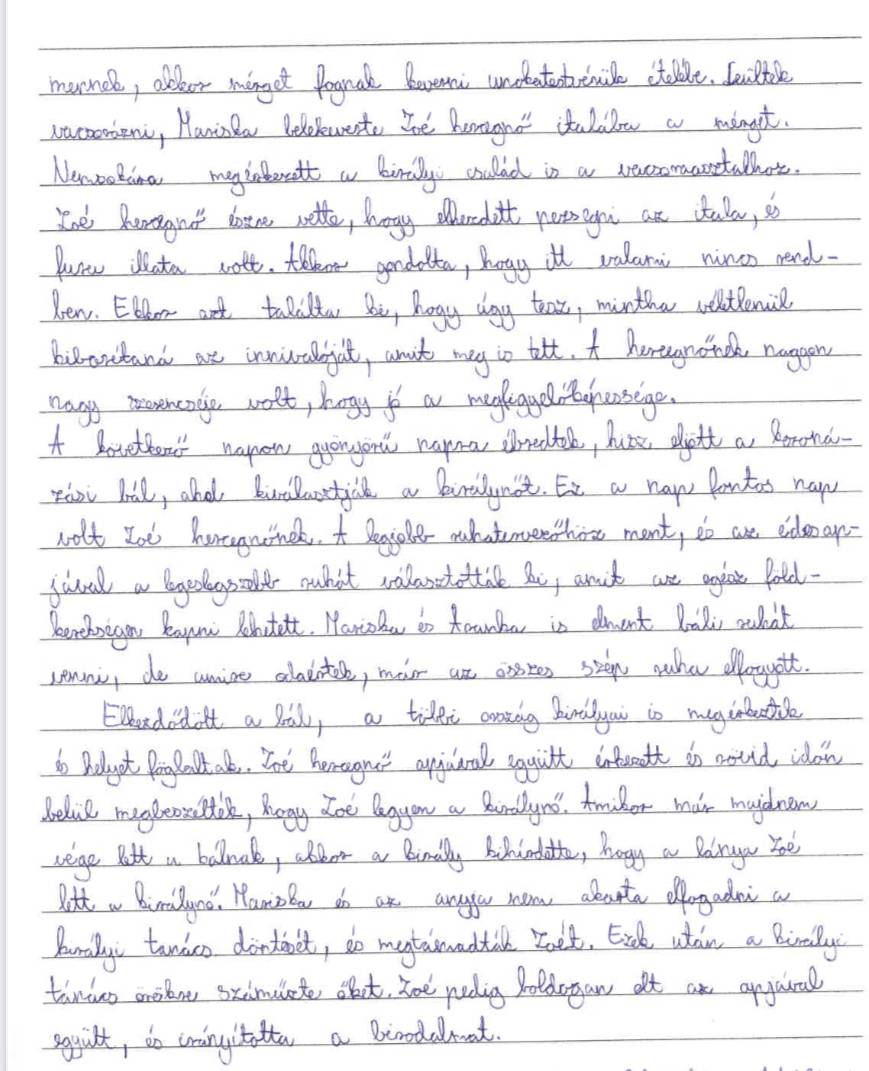 mennek, akkor mérget fognak keverni unokatestvérük ételébe. Leültek
vacsorázni, Mariska belekeverte Zoé hercegnő italába a mérget.
Nemsokára megérkezett a királyi család is a vacsoraasztalhoz.
Zoé hercegnő észre vette, hogy elkezdett pezsegni az itala, és
fura illata volt. Akkor gondolta, hogy itt valami nincs rend-
ben. Ekkor azt találta ki, hogy úgy tesz, mintha véletlenül
kiborítaná az innivalóját, amit meg is tett. A hercegnőnek naggon
nagy szerencséje volt, hogy jó a megfiggyelőképessége.
A következő napon gyönyörű napra ébredtek, hisz eljött a koroná-
zási bál, ahol kiválasztják a királynőt. Ez a nap fontos nap
volt Zoé hercegnőnek. A legjobb ruhatervezőhöz ment, és az édesap-
jával a legeslegszebb ruhát választották ki, amit az egész föld-
kerekségen kapni lehetett. Mariska és Aranka is elment báli ruhát
venni, de amire odaértek, már az összes szép ruha elfogyott.
Elkezdődött a bál, a többi ország királyai is megérkeztek
és helyet foglaltak. Zoé hercegnő apjával együtt érkezett és rövid időn
belül megbeszélték, hogy Zoé legyen a királynő. Amikor már majdnem
vége lett a bálnak, akkor a király kihirdette, hogy a lánya Zoé
lett a királynő. Mariska és az anyja nem akarta elfogadni a
királyi tanács döntését, és megtámadták Zoét. Ezek után a királyi
tanács örökre száműzte őket. Zoé pedig boldogan élt az apjával
együtt, és irányította a birodalmat.